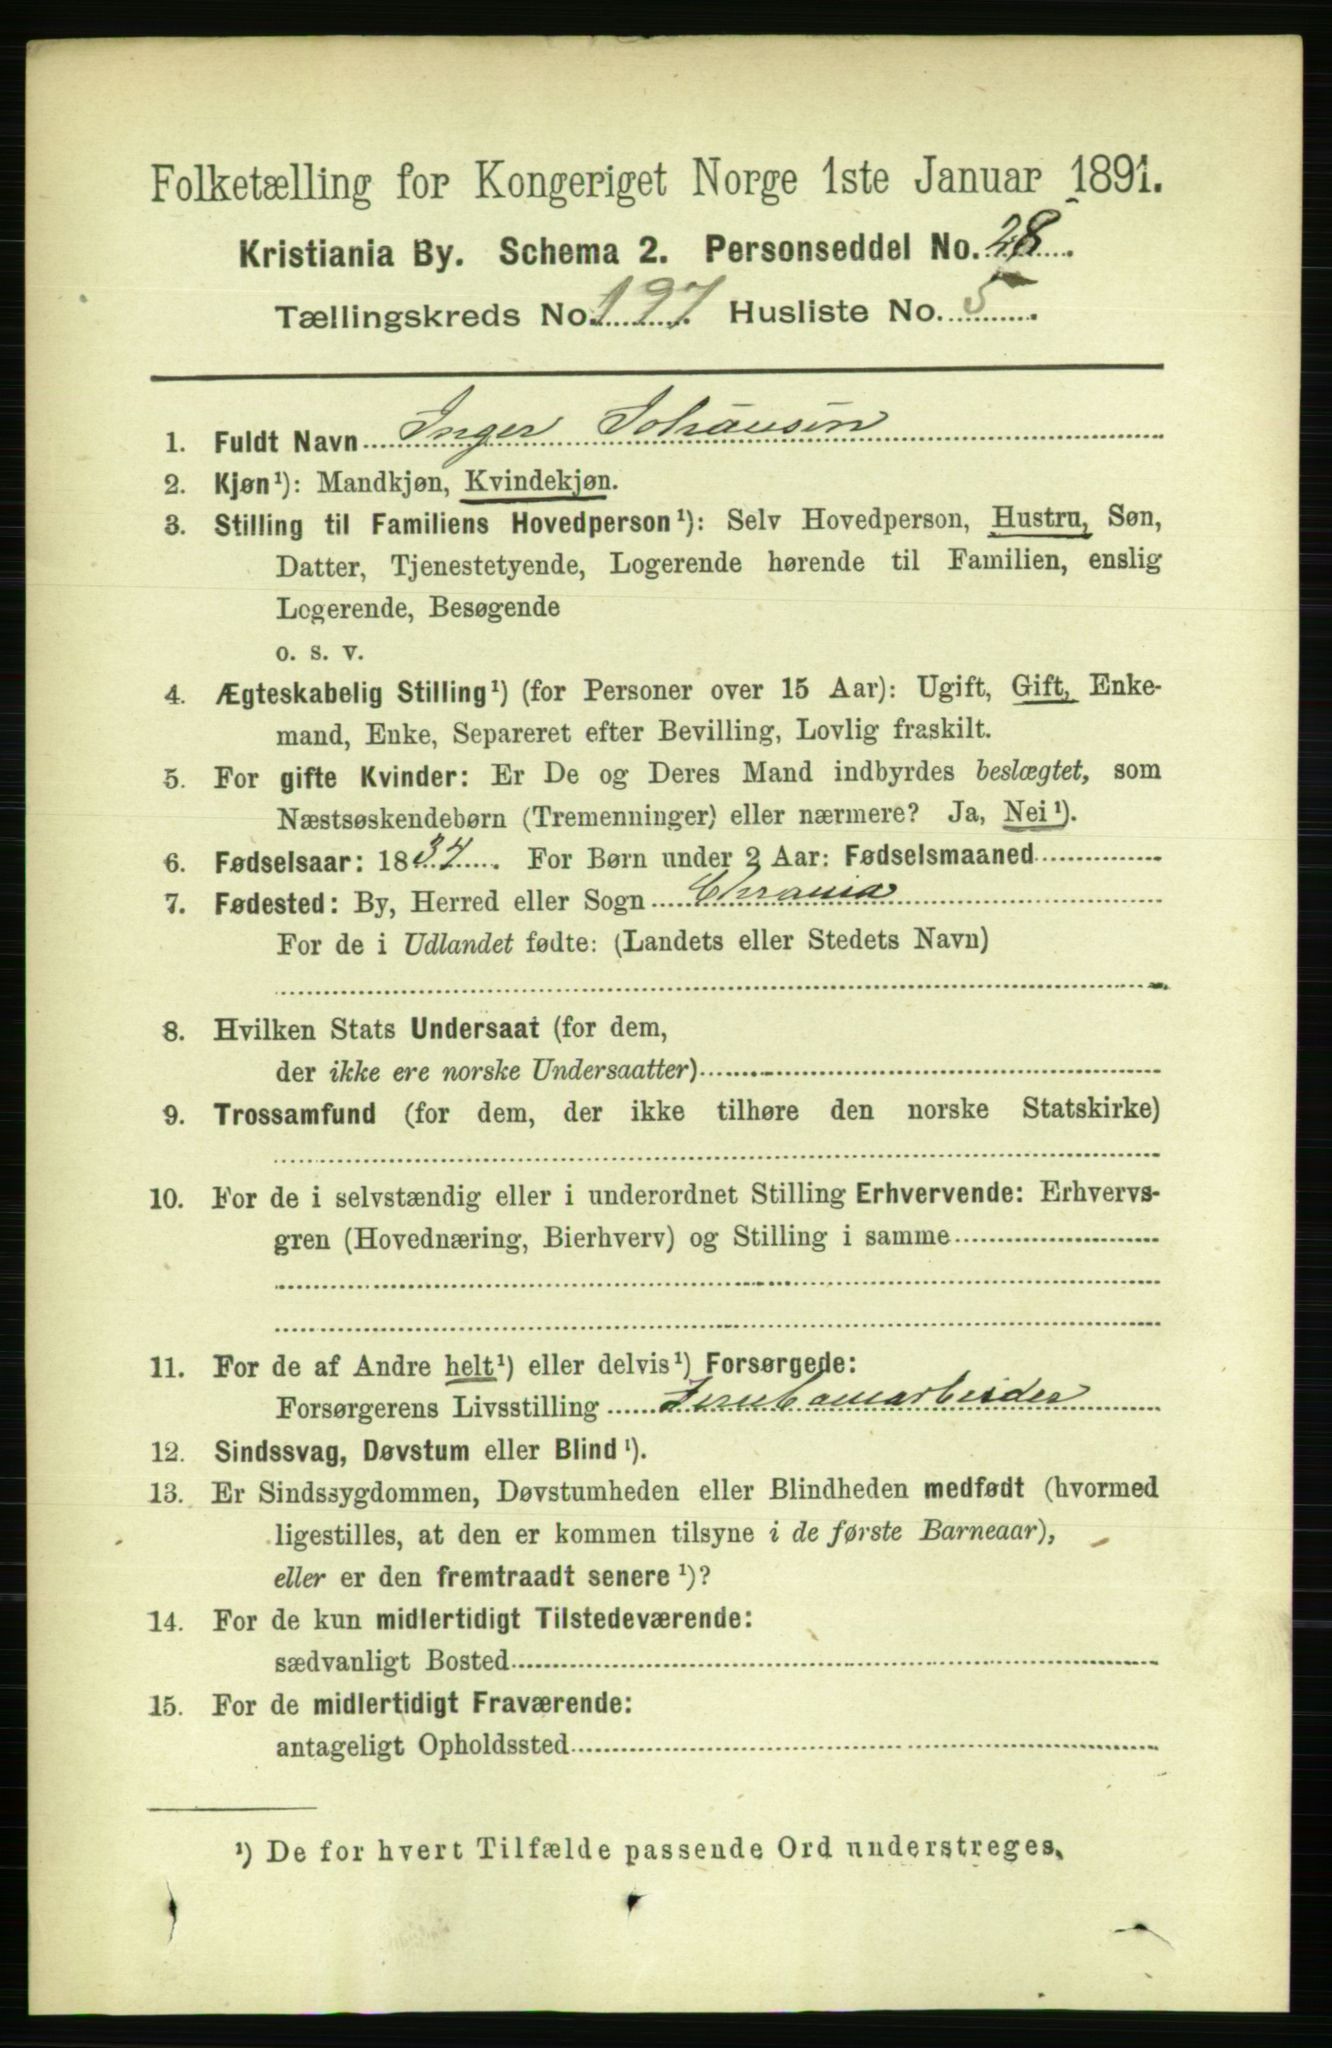 Folketælling for Kongeriget Norge 1ste Januar 1891.
Kristiania By. Schema 2. Personseddel No. 28
Tællingskreds No. 197 Husliste No. 5
1. Fuldt Navn Inger Johansen
2. Kjøn¹): Mandkjøn, Kvindekjøn.
3. Stilling til Familiens Hovedperson¹): Selv Hovedperson, Hustru, Søn,
Datter, Tjenestetyende, Logerende hørende til Familien, enslig
Logerende, Besøgende
o. s. v.
4. Ægteskabelig Stilling¹) (for Personer over 15 Aar): Ugift, Gift, Enke-
mand, Enke, Separeret efter Bevilling, Lovlig fraskilt.
5. For gifte Kvinder: Er De og Deres Mand indbyrdes beslægtet, som
Næstsøskendebørn (Tremenninger) eller nærmere? Ja, Nei¹).
6. Fødselsaar: 1837. For Børn under 2 Aar: Fødselsmaaned
7. Fødested: By, Herred eller Sogn Chrania
For de i Udlandet fødte: (Landets eller Stedets Navn)
8. Hvilken Stats Undersaat (for dem,
der ikke ere norske Undersaatter)
9. Trossamfund (for dem, der ikke tilhøre den norske Statskirke)
10. For de i selvstændig eller i underordnet Stilling Erhvervende: Erhvervs-
gren (Hovednæring, Bierhverv) og Stilling i samme
11. For de af Andre helt¹) eller delvis¹) Forsørgede:
Forsørgerens Livsstilling
12. Sindssvag, Døvstum eller Blind¹).
13. Er Sindssygdommen, Døvstumheden eller Blindheden medfødt (hvormed
ligestilles, at den er kommen tilsyne i de første Barneaar),
eller er den fremtraadt senere¹)?
14. For de kun midlertidigt Tilstedeværende:
sædvanligt Bosted
15. For de midlertidigt Fraværende:
antageligt Opholdssted
¹) De for hvert Tilfælde passende Ord understreges.